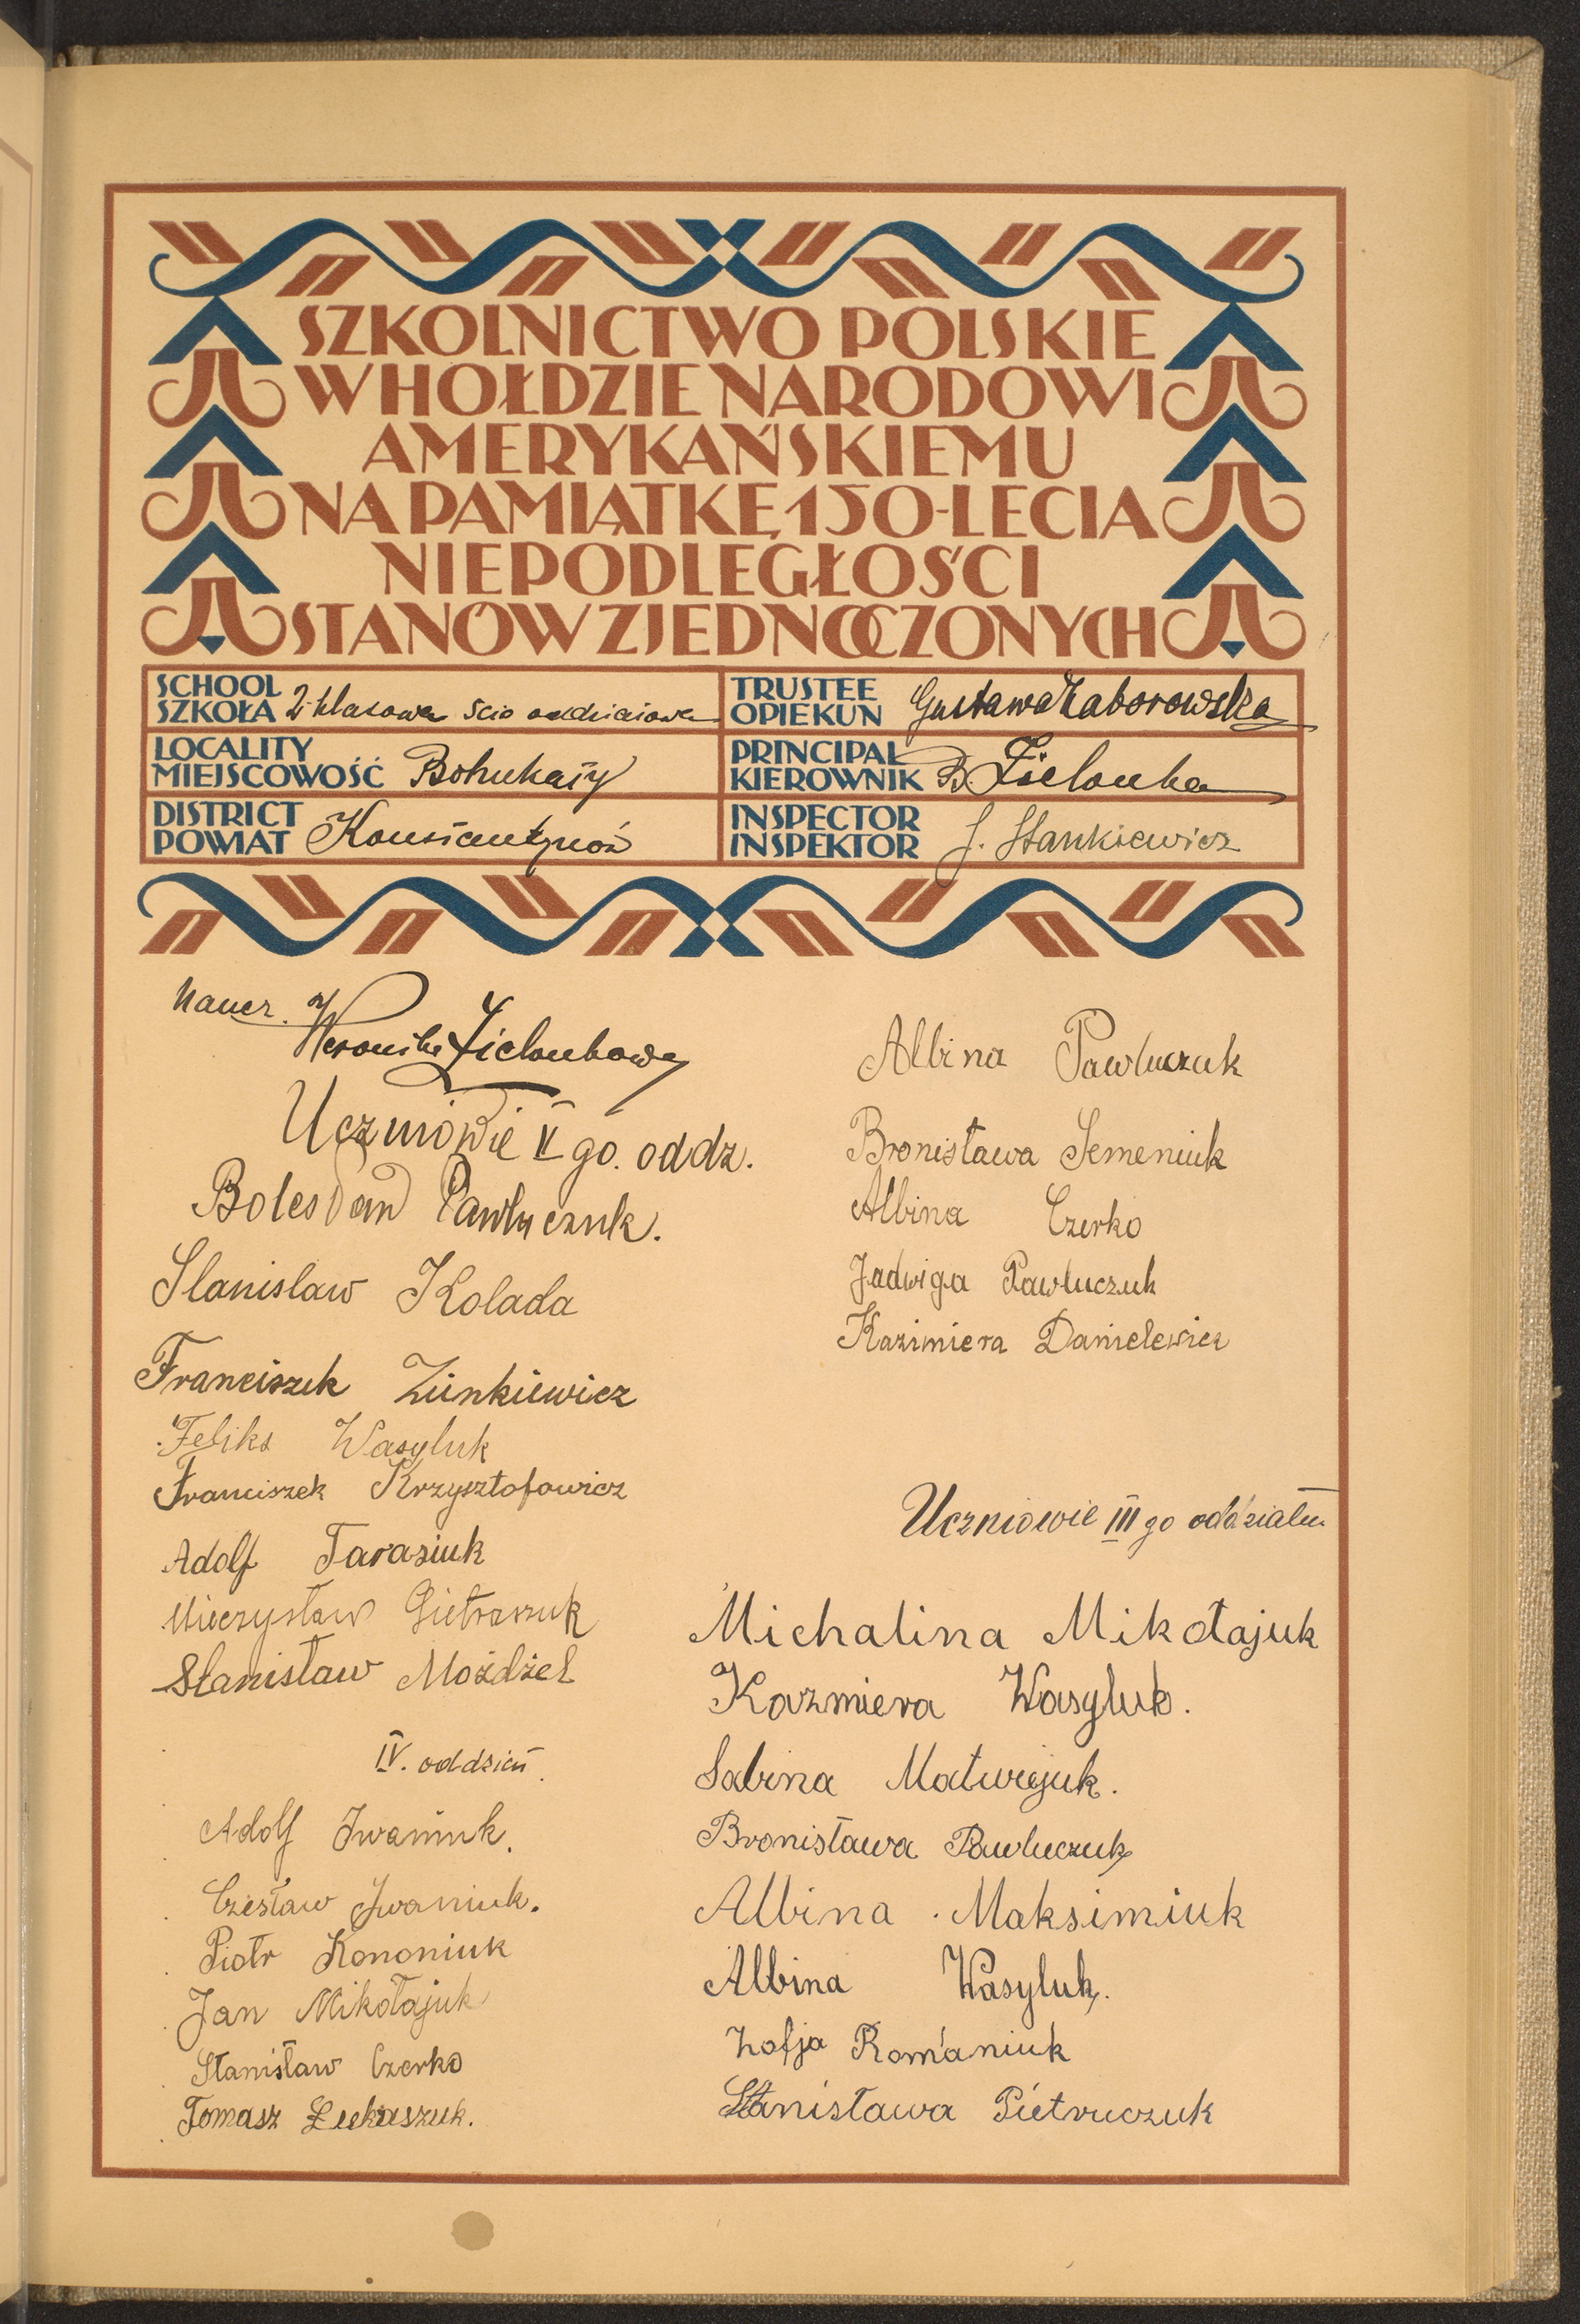 SZKOLNICTWO POLSKIE
W HOŁDZIE NARODOWI
AMERYKAŃSKIEMU
NA PAMIĄTKĘ 150-LECIA
NIEPODLEGŁOŚCI
STANÓW ZJEDNOCZONYCH
SCHOOL
SZKOŁA 2-klasowa 5cio oddziałowa
LOCALITY
MIEJSCOWOŚĆ Bohukały
DISTRICT
POWIAT
TRUSTEE
OPIEKUN Gustawa Zaborowska
PRINCIPAL
KIEROWNIK B. Zielonka
INSPECTOR
INSPEKTOR J. Stankiewicz
Naucz. Weronika Zielonkowa
Uczniowie V go. oddz.
Pawluczuk.
Stanislaw Kolada
Franciszek Zinkiewicz
Feliks Wasyluk
Franciszek Krzysztofowicz
Adolf Tarasiuk
Mieczysław Pietraszuk
Stanisław Moździeł
IV. oddział
Adolf Iwaniuk.
Czesław Iwaniuk.
Piotr Kononiuk
Jan Mikołajuk
Stanisław Czerko
Tomasz Łukaszuk.
Albina Pawluczuk
Bronisława Semeniuk
Albina Czerko
Jadwiga Pawluczuk
Kazimiera Danielewicz
Uczniowie III go oddziału
Michalina Mikołajuk
Kazmiera Wasyluk.
Sabina Matwiejuk.
Bronisława Pawluczuk
Albina Maksimiuk
Albina Wasyluk.
Zofja Romaniuk
Stanisława Pietruczuk